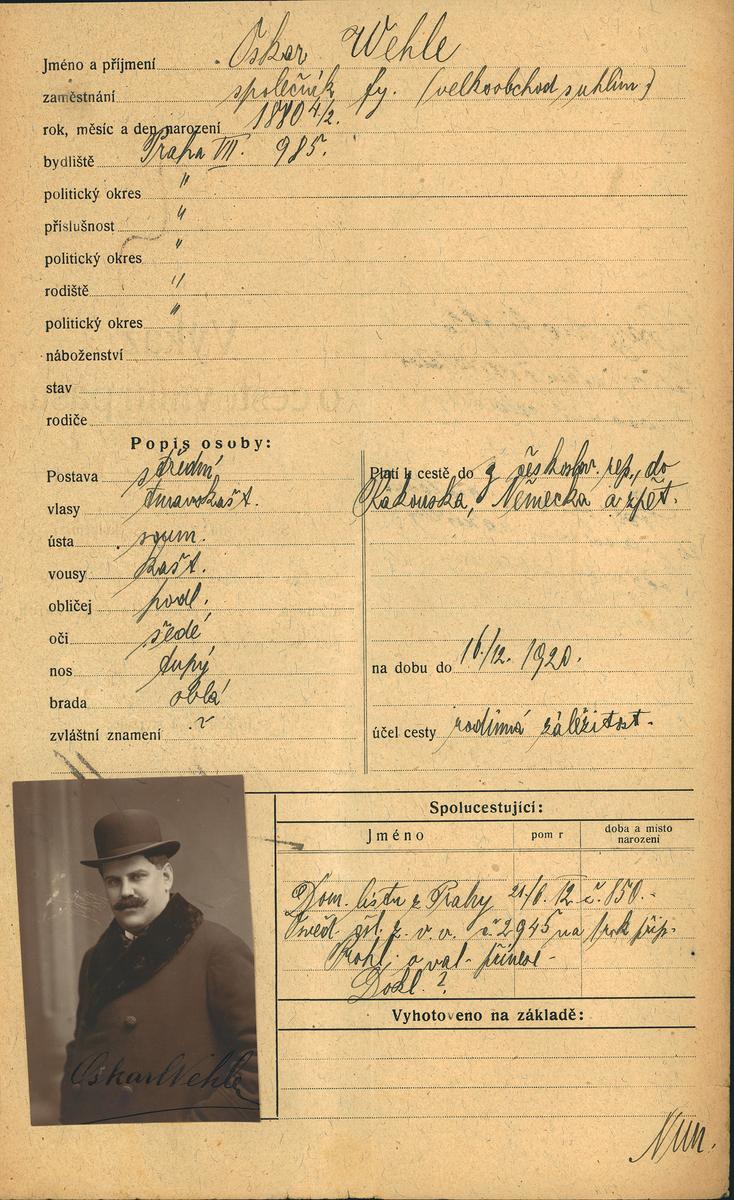 Jméno a příjmení Oskar Wehle
zaměstnání společník fy. (velkoobchod s uhlím)
rok, měsíc a den narození 1880 4/2.
bydliště Praha VII. 985.
politický okres "
příslušnost "
politický okres "
rodiště "
politický okres "
náboženství
stav
rodiče
Popis osoby:
Postava střední
vlasy tmavokašt.
ústa soum.
vousy kašt.
obličej podl.
oči šedé
nos tupý
brada oblá
zvláštní znamení
Platí k cestě do z českoslov. rep. do
Rakouska, Německa a zpět.
na dobu do 16/12. 1920.
účel cesty rodinná záležitost.
Spolucestující:
Jméno
pom r
doba a místo
narození
Dom. listu z Prahy 21/6. 12 č. 850.-
č 2945 na 1 rok
Dokl. ?
Vyhotoveno na základě:
Oskar Wehle